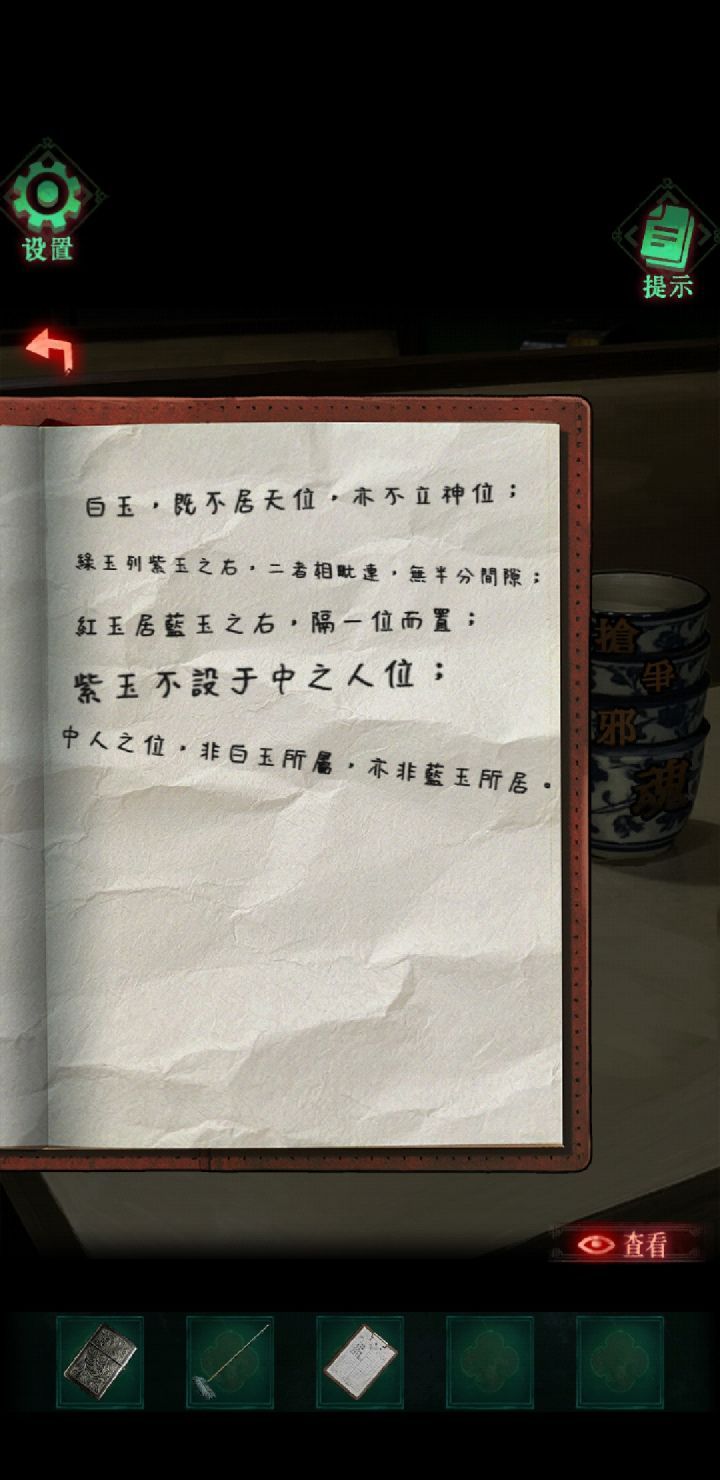 设置
提示
白玉，既不居天位，亦不立神位；
綠玉列紫玉之右，二者相毗連，無半分間隙；
紅玉居藍玉之右，隔一位而置；
紫玉不設于中之人位；
中人之位，非白玉所屬，亦非藍玉所居。
搶
爭
邪
魂
查看